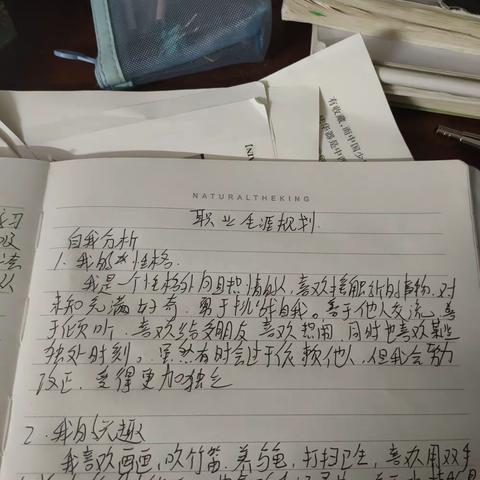 有收藏,而中国少
NATURALTHEKING
职业生涯规划.
自我分析
1. 我的性格.
我是一个性格外向且积极的人,喜欢接触新的事物.对
未知充满好奇,勇于挑战自我。善于他人交流,善
于倾听,喜欢结交朋友,喜欢热闹,同时也喜欢某些
独处时刻。虽然有时会过于依赖他人,但我会努力
改正,变得更加独立
2.我的兴趣
我喜欢画画,吹竹笛.养乌龟,打扫卫生,喜欢用双手